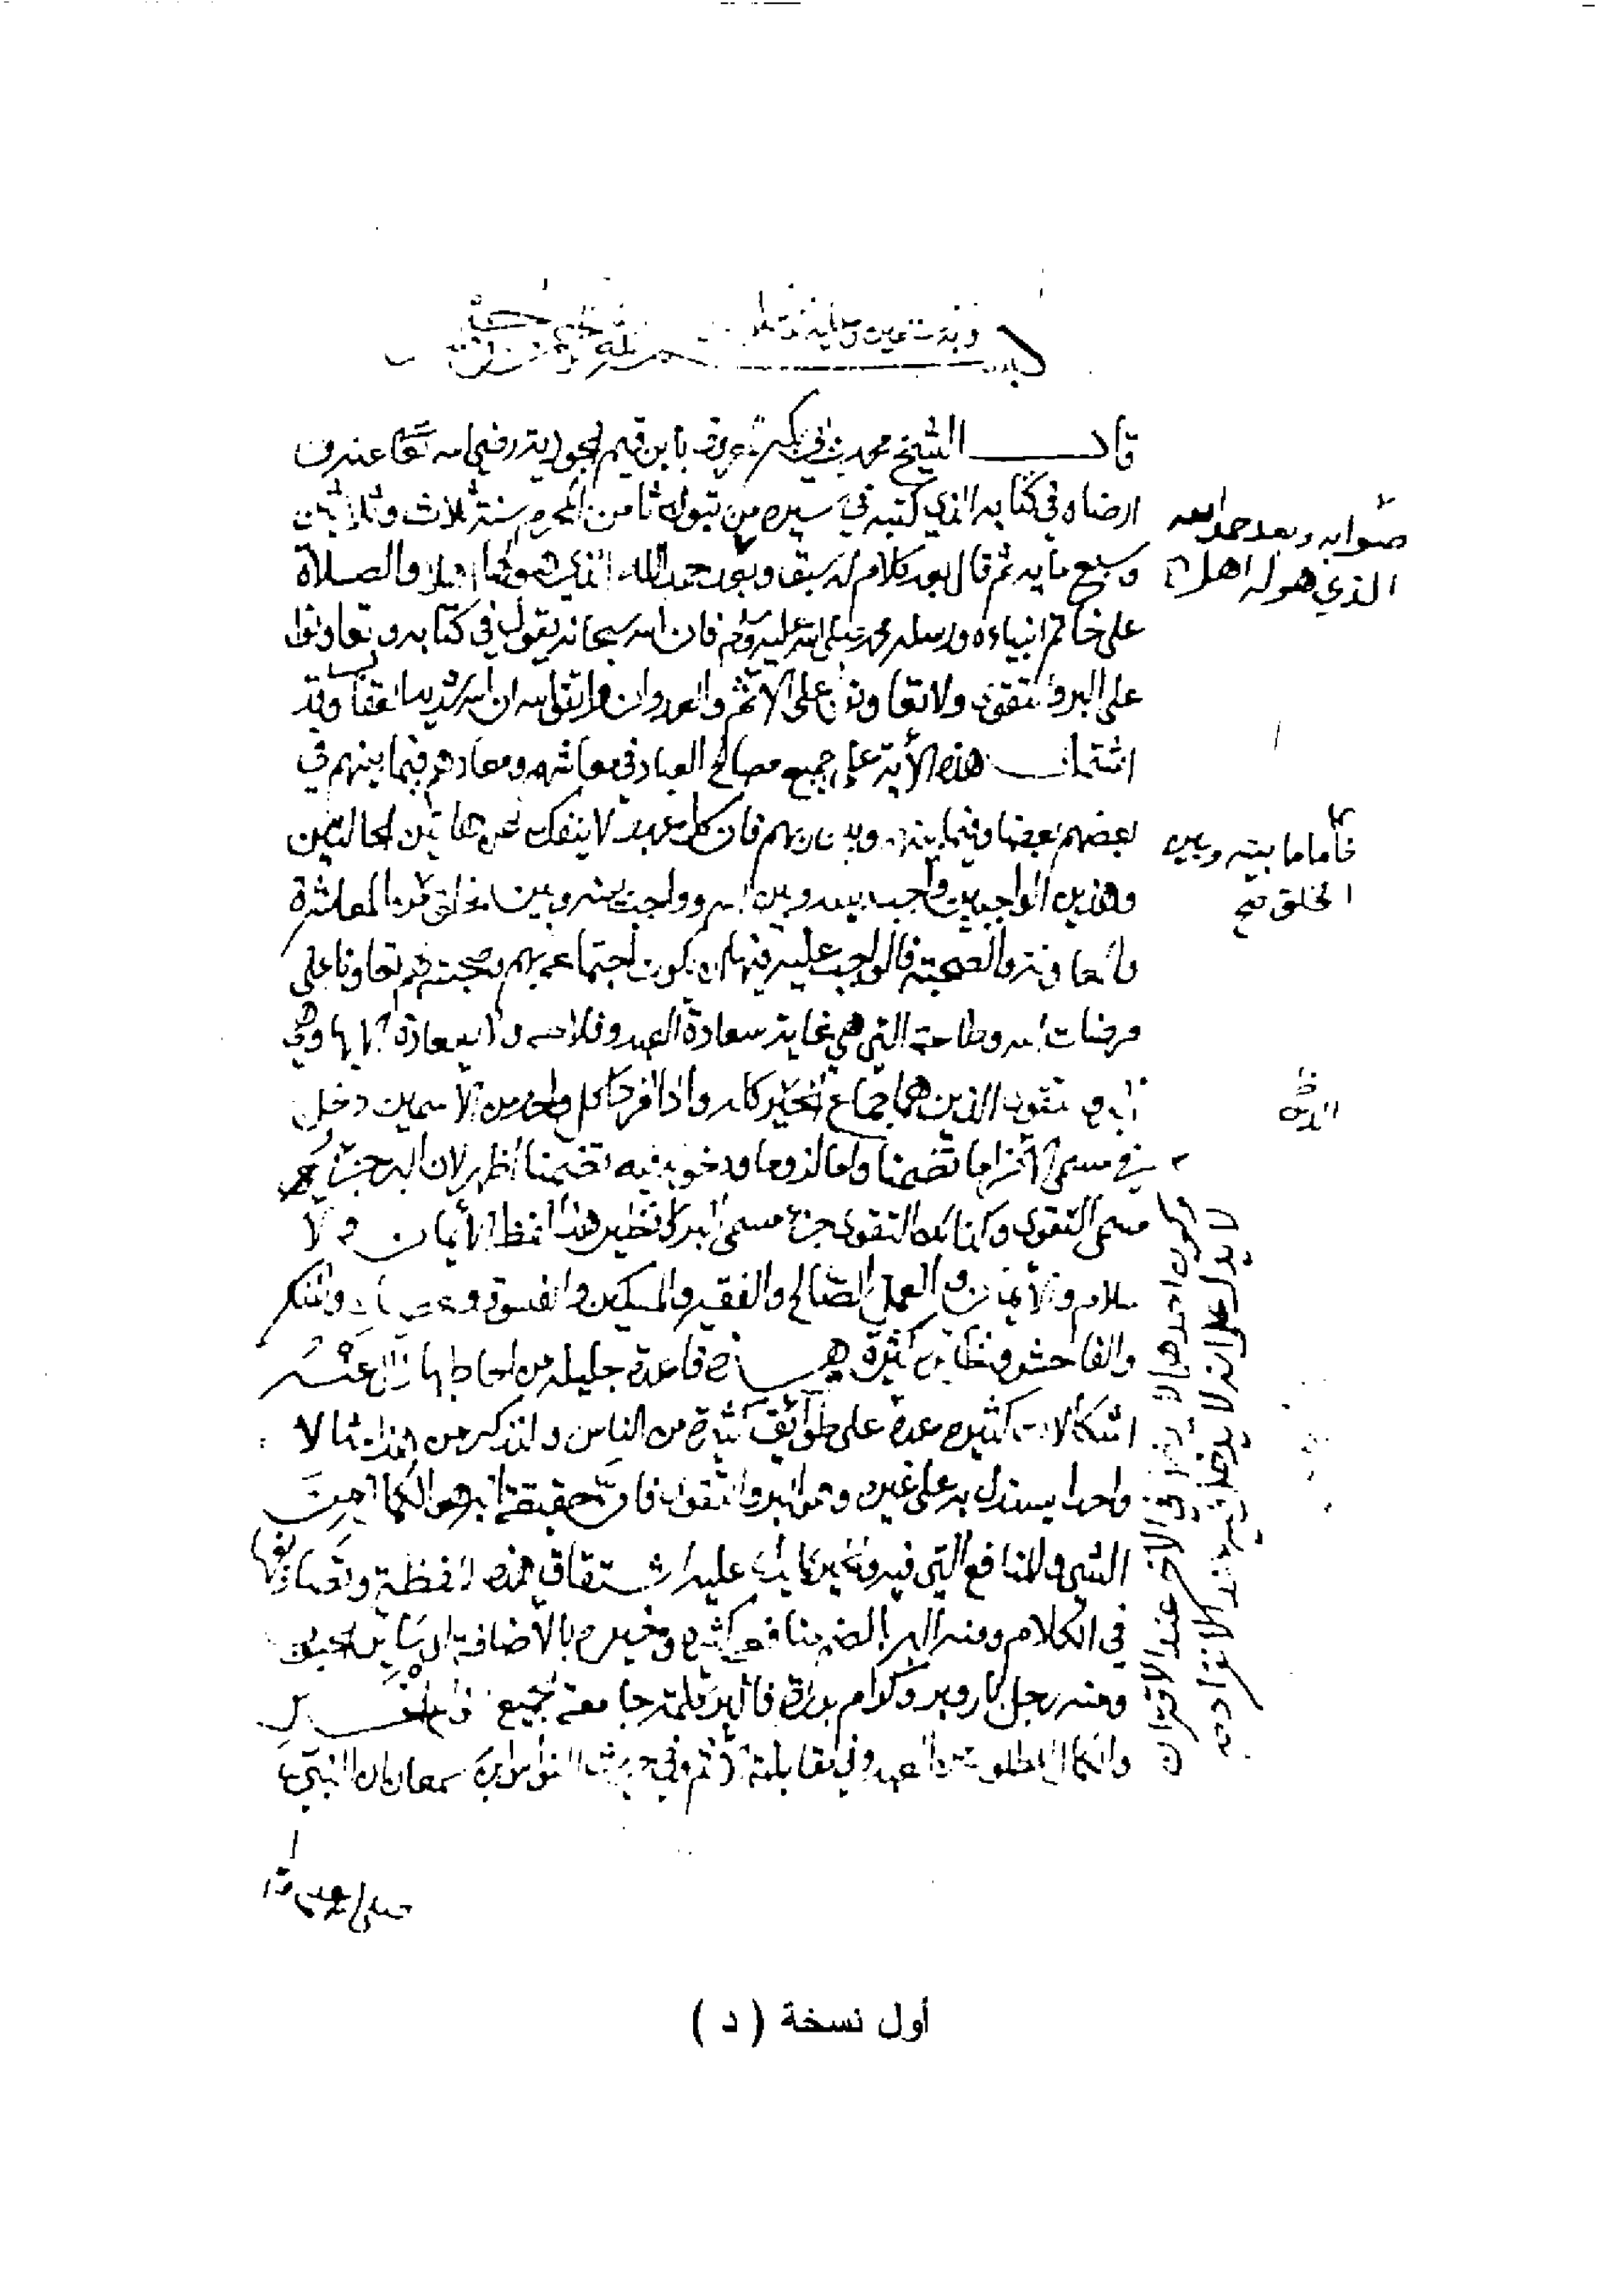 بسم الله الرحمن الرحيم
وبه نستعين وعليه نتوكل
قال الشيخ محمد بن أبي بكر عرف بابن قيم الجوزية رضي الله تعالى عنه و
ارضاه في كتابه الذي كتبه في سيره من تبوك ثامن المحرم سنة ثلاث وثلاثين
وسبع مايه ثم قال بعد كلام له سبق وبعد حمد الله الذي هو لها اهلا والصلاة
على خاتم انبياءه ورسله محمد صلى الله عليه وسلم فان الله سبحانه يقول في كتابه وتعاونوا
على البر والتقوى ولا تعاونوا على الاثم والعدوان واتقوا الله ان الله شديد العقاب وقد
اشتملت هذه الأية على جميع مصالح العباد في معاشهم ومعادهم فيما بينهم في
بعضهم بعضا وفيما بينهم وبين ربهم فان كل عبد لا ينفك عن هاتين الحالتين
وهذين الواجبين واجب بينه وبين الله وواجب بينه وبين الخلق من المعاشرة
والمعاونة والصحبة فالواجب عليه فيها ان يكون اجتماعه بهم وصحبته لهم تعاونا على
مرضات الله وطاعته التي هي غاية سعادة العبد وفلاحه ولا سعادة له الا بها وهي
البر والتقوى الذين هما جماع الخير كله واذا افرد كل واحد من الاسمين دخل
في مسمى الآخر اما تضمنا واما لزوما ودخوله فيه تضمنا اظهر لان البر جزء
مسمى التقوى وكذلك التقوى جزء مسمى البر ونظير هذا لفظ الأيمان والا
سلام والأيمان والعمل الصالح والفقير والمسكين والفسوق والعصيان والمنكر
والفاحشه ونظايره كثيرة وهذه قاعدة جليله من احاط بها زال عنه
اشكالات كثيره على طوائف كثيرة من الناس ولنذكر من هذا مثالا
واحدا يستدل به على غيره وهو البر والتقوى فان حقيقة البر هو الكمال
الشي والمنافع التي فيه والخير كما يدل عليه اشتقاق هذه اللفظة وتصاريفها
في الكلام ومنه البر بالضم لمنافعه كثيره وخيره بالاضافة الى ساير الحبوب
ومنه رجل بار وبر وكرام برره فالبر كلمة جامعة لجميع الخير
والكمال المطلوب من العبد وفي مقابلته الاثم وفي حديث النواس بن سمعان ان النبي
صلى الله عليه
صوابه وبعد حمد الله
الذي هوله اهل
فأما ما بينه وبين
الخلق صح
وكون احدهما لا يدخل في الاخر عند الاقتران
لا يدل على انه لا يدخل فيه عند الانفراد
أول نسخة ( د )